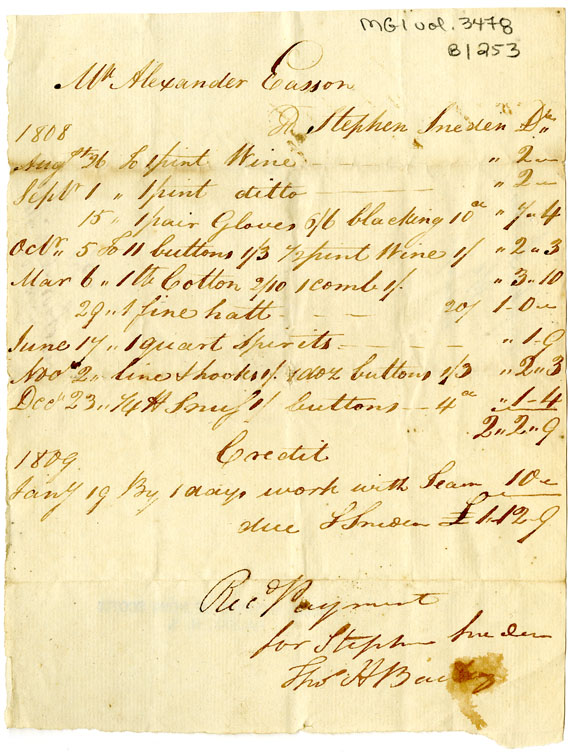 MG1 vol. 3478
B1253
Mr Alexander Easson
To Stephen Sneden Dr
1808
Augst 26 To 1 pint Wine - - - " 2 "
Septr 1 " 1 pint ditto - - - " 2 "
15 " 1 pair Gloves 6/6 blacking 10d " 7 " 4
Octr " 5 To 11 buttons 1/3 1/2 pint Wine 1/ " 2 " 3
Mar 6 " 1 lb Cotton 2/10 1 comb 1/. " 3 " 10
29 " 1 fine hatt - - 20/ 1 " 0 "
June 17 " 1 quart Spirits - - - " 1 " 9
Novr 2 " line & hooks 1/. 1 doz buttons 1/3 " 2 " 3
Decr 23 " 1/4 lb Snuf 1/ buttons - - 4d " 1 " 4
2 " 2 " 9
1809 Credit
Jany 19 By 1 days work with Team 10 "
due S Sneden £ 1 " 12 " 9
Recd Payment
for Stephen Sneden
Thos H Bailey